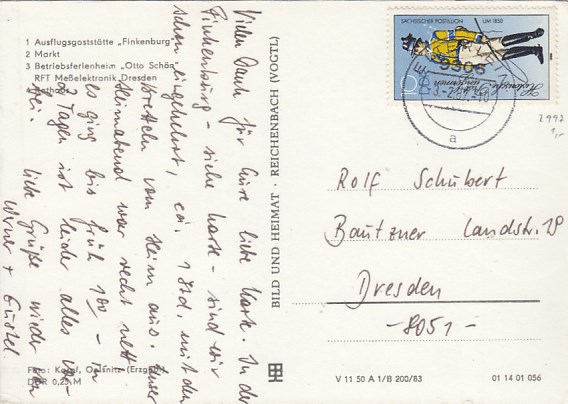 1 Ausflugsgaststätte „Finkenburg"
2 Markt
3 Betriebsferienheim „Otto Schön"
RFT Meßelektronik Dresden
4
Vielen Dank für Eure liebe Karte. In der
Finkenburg - siehe Karte - sind wir
schon eingekehrt, ca. 1 Std. mit den
Bretteln vom Heim aus. Unser
Heimatabend war recht nett
es ging bis früh 1.00 - In
3 Tagen ist leider alles vor-
bei. Liebe Grüße wieder von
Werner + Gustel
Foto: Kempf, Oelsnitz (Erzgeb.)
DDR 0,25 M
BILD UND HEIMAT · REICHENBACH (VOGTL)
SÄCHSISCHER POSTILLION UM 1850
10
Historische
DDR
9306
a
2992
1,-
Rolf Schubert
Bautzner Landstr. 19
Dresden
- 8051 -
V 11 50 A 1/B 200/83
01 14 01 056